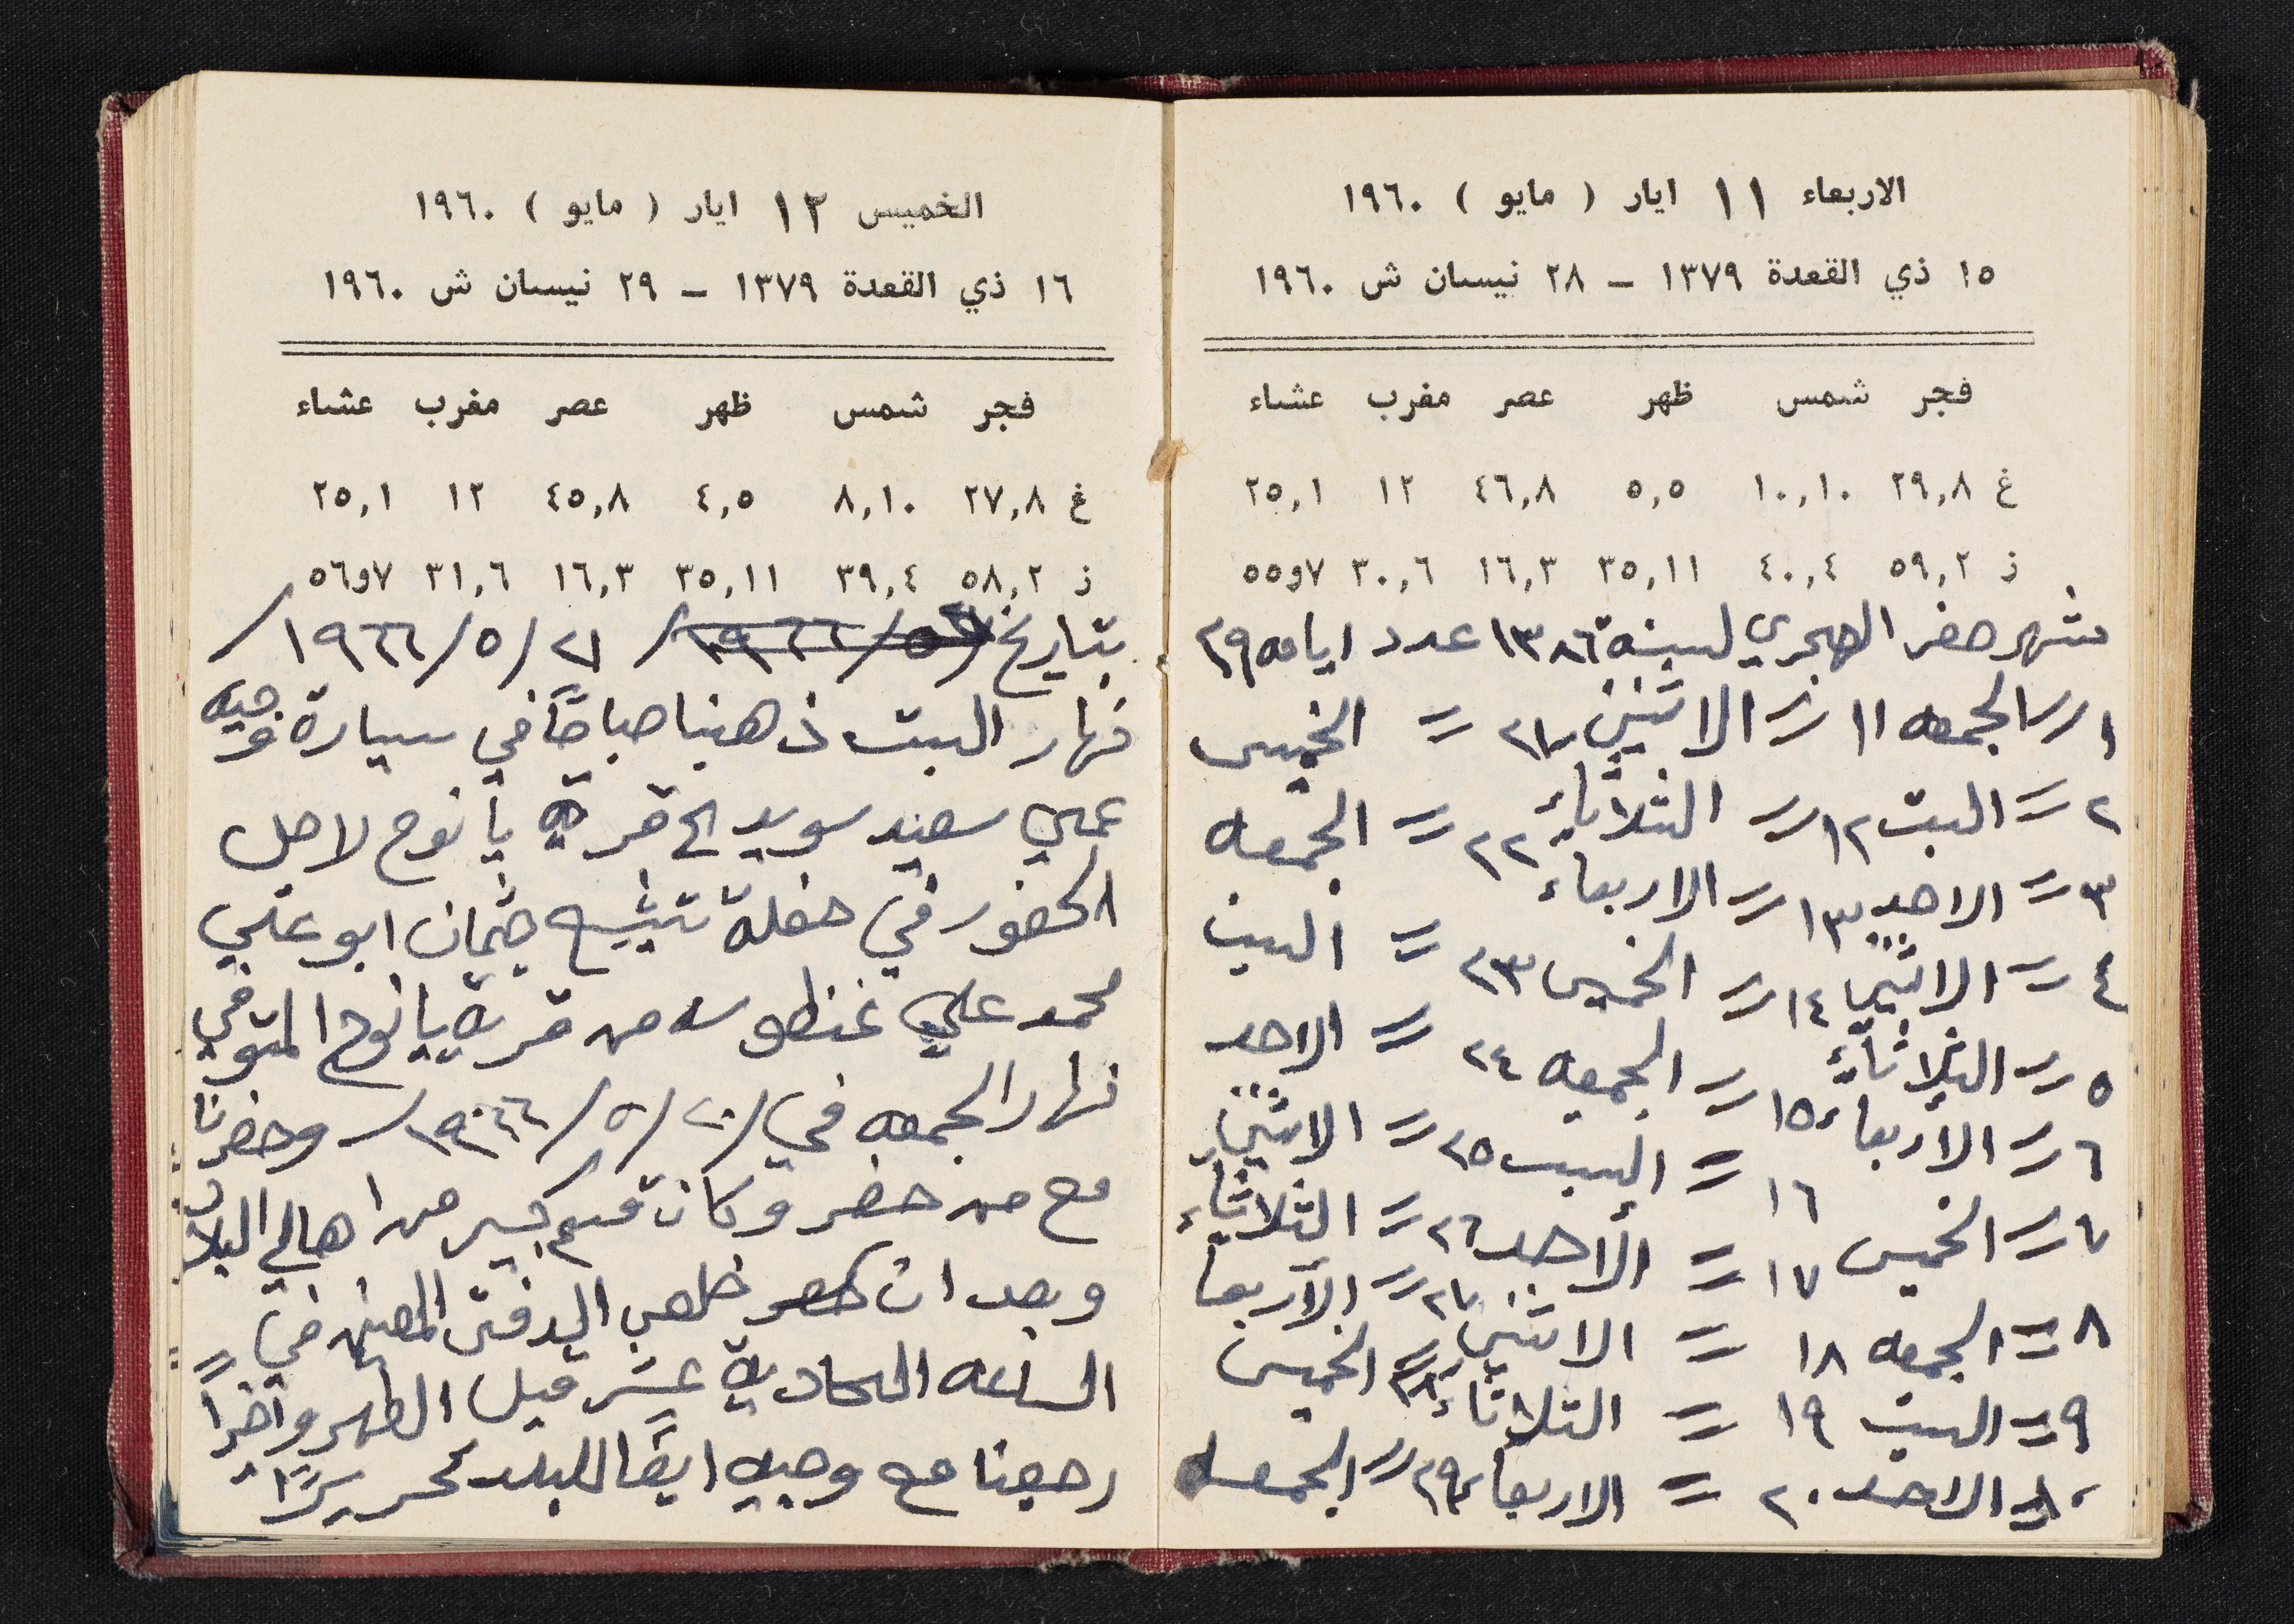 الاربعاء ١١ ايار ( مايو ) ١٩٦٠
١٥ ذي القعدة ١٣٧٩ – ٢٨ نيسان ش ١٩٦٠
فجر شمس ظهر عصر مغرب عشاء
غ ٢٩,٨ ١٠,١٠ ٥,٥ ٤٦,٨ ١٢ ٢٥,١
ز ٥٩,٢ ٤٠,٤ ٣٥,١١ ١٦,٣ ٣٠,٦ ٧و٥٥
شهر صفر الهجري لسنة ١٣٨٦ عدد ايامه ٢٩
١ // الجمعه ١١ // الاثنين ٢١ // الخميس
٢ // السبت ١٢ // الثلاثاء ٢٢ // الجمعه
٣ // الاحد ١٣ // الاربعاء ٢٣ // السبت
٤ // الاثنين ١٤ // الخميس ٢٤ // الاحد
٥ // الثلاثاء ١٥ // الجمعه ٢٥ // الاثنين
٦ // الأربعاء ١٦ // السبت ٢٦ // الثلاثاء
٧ // الخميس ١٧ // الأحد ٢٧ // الأربعا
٨ // الجمعه ١٨ // الاثنين ٢٨ // الخميس
٩ // السبت ١٩ // الثلاثاء ٢٩ // الجمعه
١٠ // الاحد ٢٠ // الاربعاء
الخميس ١٢ ايار ( مايو ) ١٩٦٠
١٦ ذي القعدة ١٣٧٩ – ٢٩ نيسان ش ١٩٦٠
فجر شمس ظهر عصر مغرب عشاء
غ ٢٧,٨ ٨,١٠ ٤,٥ ٤٥,٨ ١٢ ٢٥,١
ز ٥٨,٢ ٣٩,٤ ٣٥,١١ ١٦,٣ ٣١,٦ ٧و٥٦
بتاريخ ٢١/٥/١٩٦٦/
نهار السبت ذهبنا صباحًا في سيارة وجيه
علي سعيد سويد الى قرية يانوح لاجل
الحضور في حفلة تشيع جثمان ابو علي
محمد علي غنطوسه من قرية يانوح المتوفي
نهار الجمعه في /٢٠/٥/١٩٦٦/ وحضرنا
مع من حضر وكان قسم كبير من اهالي البلاد
وبعد ان خلص الدفن في
الساعه الحادية عشر قبل الظهر وأخيرًا
رجعنا مع وجيه ايضًا للبلد تحريرًا